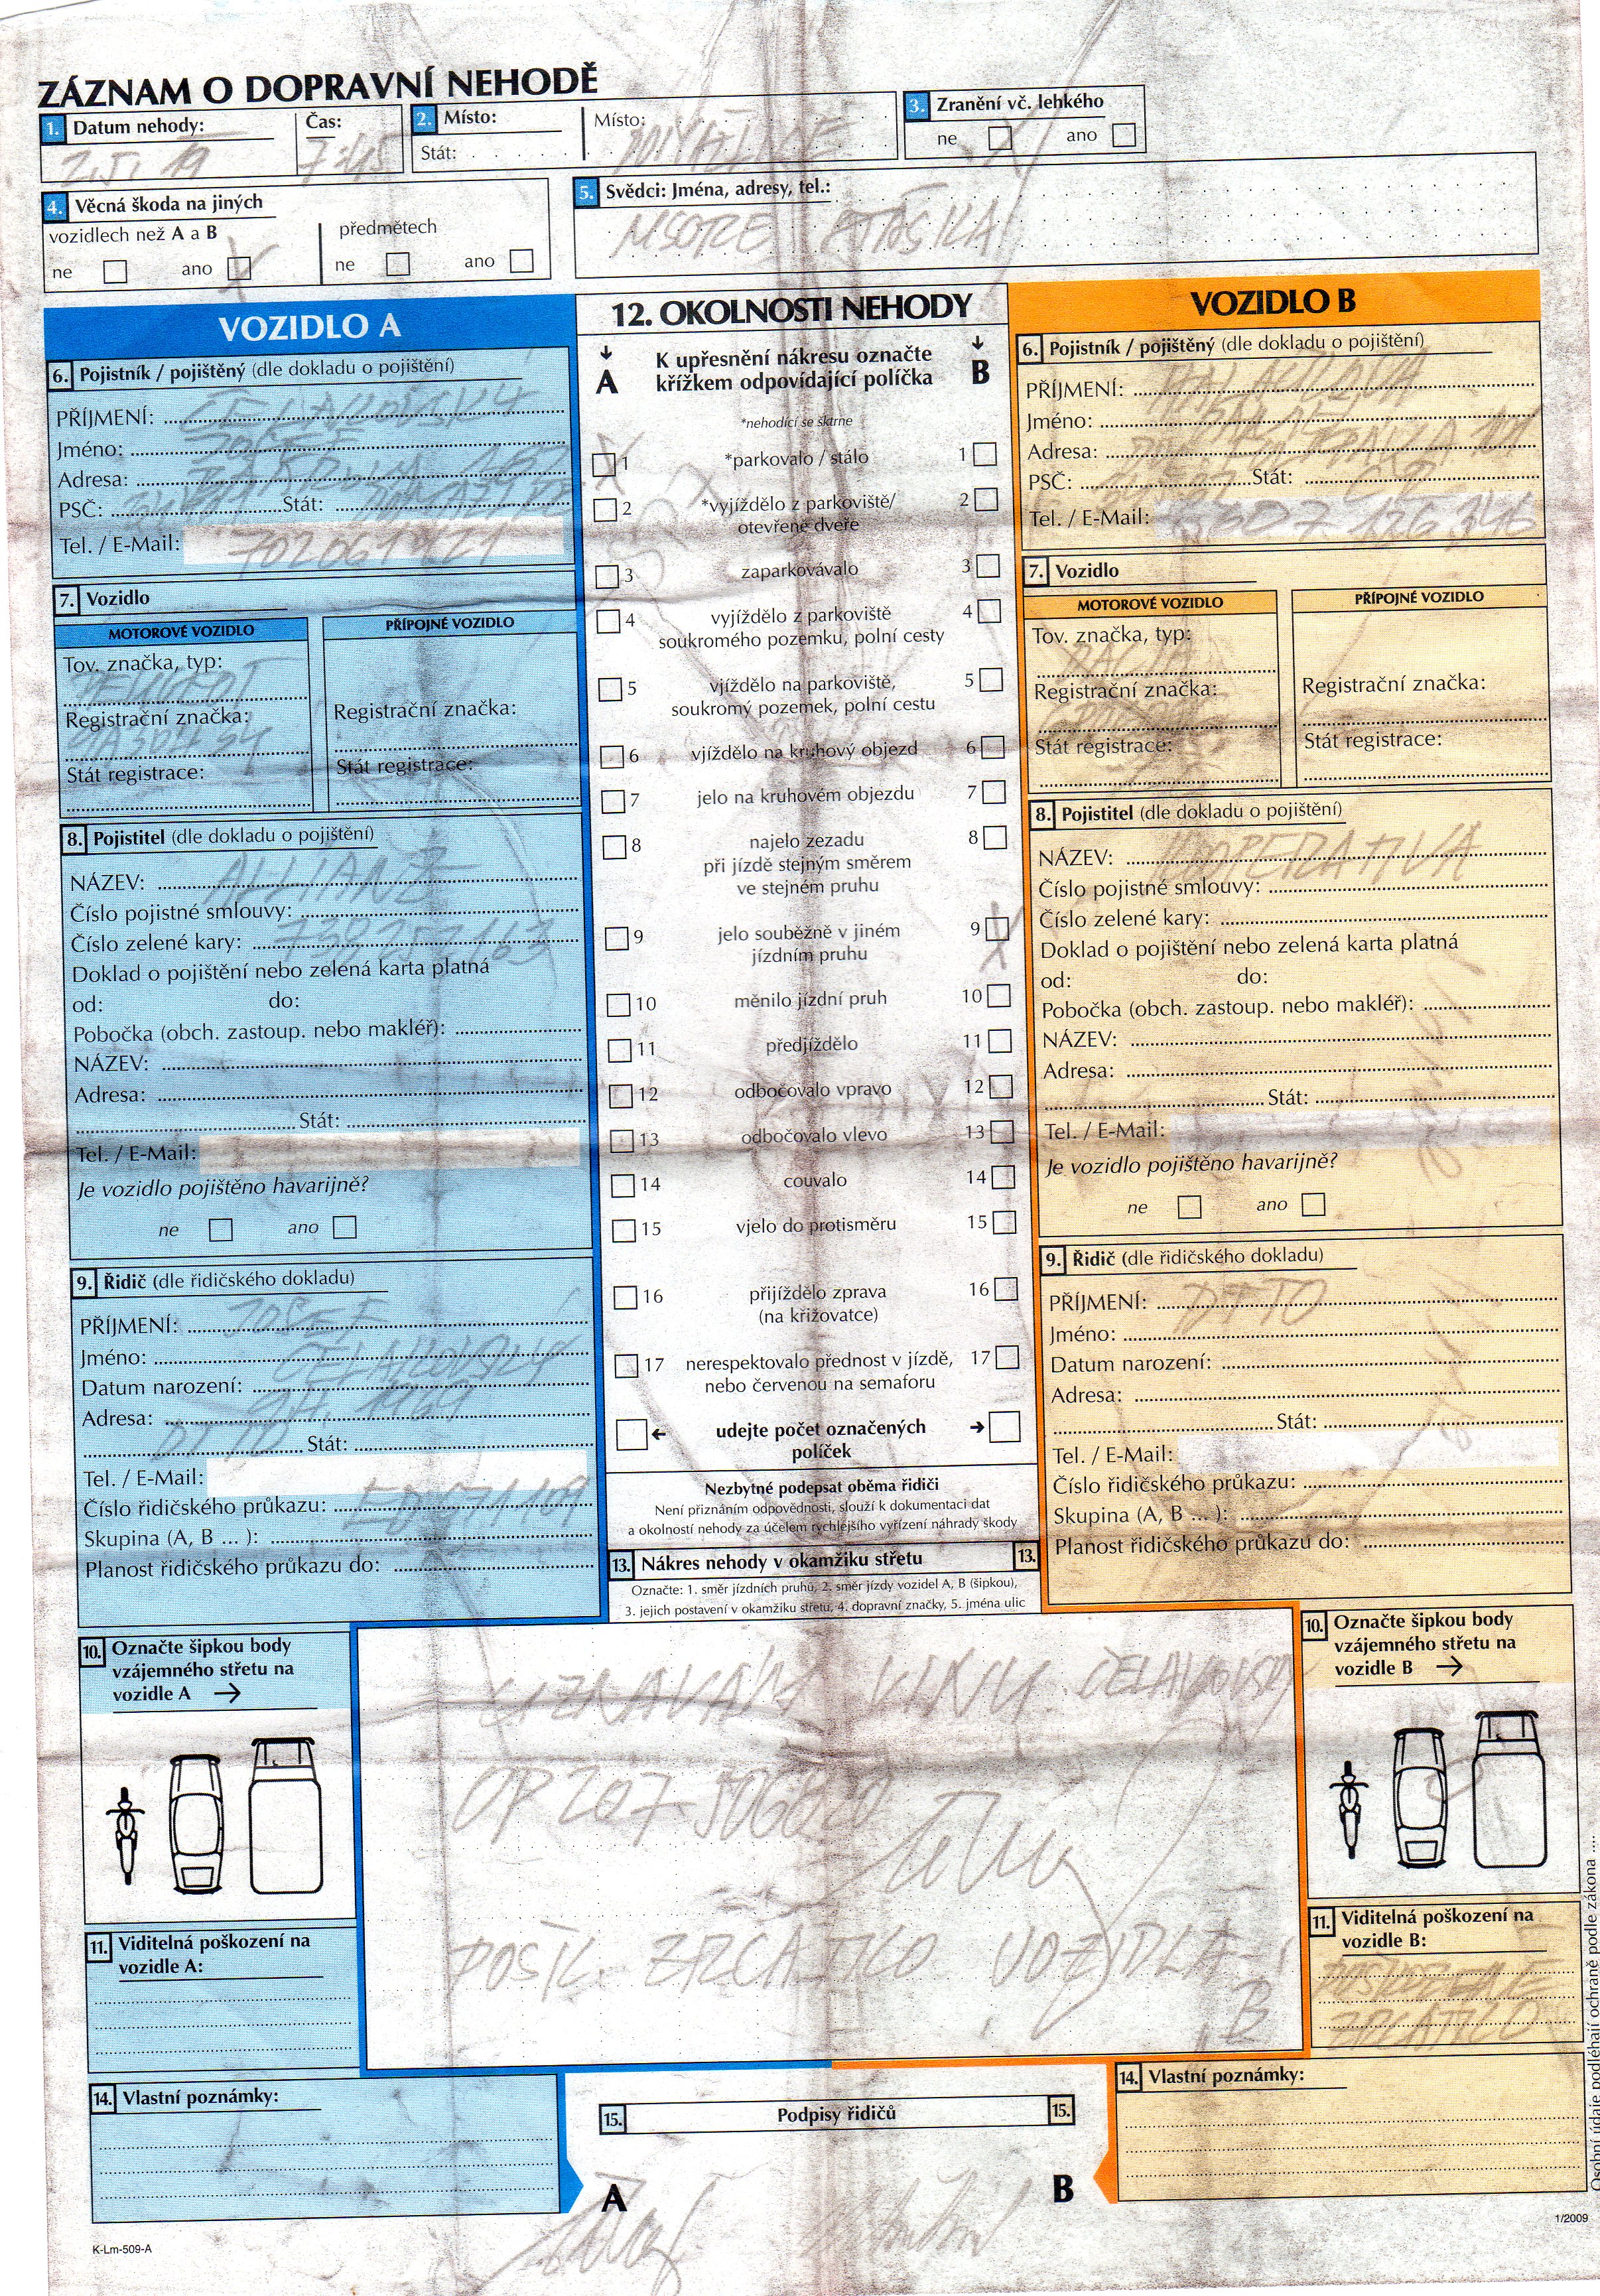 ZÁZNAM O DOPRAVNÍ NEHODĚ
1. Datum nehody:
Čas:
7:45
2. Místo:
Stát:
Místo:
3. Zranění vč. lehkého
ne X ano
4. Věcná škoda na jiných
vozidlech než A a B
předmětech
ne ano X
ne ano
5. Svědci: Jména, adresy, tel.:
VOZIDLO A
6. Pojistník / pojištěný (dle dokladu o pojištění)
PŘÍJMENÍ: ČELAKOVSKÝ
Jméno: JOSEF
Adresa:
PSČ: Stát:
Tel. / E-Mail:
7. Vozidlo
MOTOROVÉ VOZIDLO
PŘÍPOJNÉ VOZIDLO
Tov. značka, typ:
PEUGEOT
Registrační značka:
Registrační značka:
Stát registrace:
Stát registrace:
8. Pojistitel (dle dokladu o pojištění)
NÁZEV: ALLIANZ
Číslo pojistné smlouvy:
Číslo zelené kary:
Doklad o pojištění nebo zelená karta platná
od: do:
Pobočka (obch. zastoup. nebo makléř):
NÁZEV:
Adresa:
Stát:
Tel. / E-Mail:
Je vozidlo pojištěno havarijně?
ne ano
9. Řidič (dle řidičského dokladu)
PŘÍJMENÍ: JOSEF
Jméno: ČELAKOVSKÝ
Datum narození:
Adresa:
Stát:
Tel. / E-Mail:
Číslo řidičského průkazu:
Skupina (A, B ... ):
Planost řidičského průkazu do:
12. OKOLNOSTI NEHODY
A
K upřesnění nákresu označte
křížkem odpovídající políčka
B
*nehodící se škrtne
1 *parkovalo / stálo 1
2 *vyjíždělo z parkoviště/
otevřené dveře 2
3 zaparkovávalo 3
4 vyjíždělo z parkoviště
soukromého pozemku, polní cesty 4
5 vjíždělo na parkoviště,
soukromý pozemek, polní cestu 5
6 vjíždělo na kruhový objezd 6
7 jelo na kruhovém objezdu 7
8 najelo zezadu
při jízdě stejným směrem
ve stejném pruhu 8
9 jelo souběžně v jiném
jízdním pruhu 9 X
10 měnilo jízdní pruh 10
11 předjíždělo 11
12 odbočovalo vpravo 12
13 odbočovalo vlevo 13
14 couvalo 14
15 vjelo do protisměru 15
16 přijíždělo zprava
(na křižovatce) 16
17 nerespektovalo přednost v jízdě,
nebo červenou na semaforu 17
udejte počet označených
políček
Nezbytné podepsat oběma řidiči
Není přiznáním odpovědnosti, slouží k dokumentaci dat
a okolností nehody za účelem rychlejšího vyřízení náhrady škody
13. Nákres nehody v okamžiku střetu 13.
Označte: 1. směr jízdních pruhů, 2. směr jízdy vozidel A, B (šipkou),
3. jejich postavení v okamžiku střetu, 4. dopravní značky, 5. jména ulic
VOZIDLO B
6. Pojistník / pojištěný (dle dokladu o pojištění)
PŘÍJMENÍ:
Jméno:
Adresa:
PSČ: Stát: ČR
Tel. / E-Mail:
7. Vozidlo
MOTOROVÉ VOZIDLO
PŘÍPOJNÉ VOZIDLO
Tov. značka, typ:
DACIA
Registrační značka:
Registrační značka:
Stát registrace:
Stát registrace:
8. Pojistitel (dle dokladu o pojištění)
NÁZEV: KOOPERATIVA
Číslo pojistné smlouvy:
Číslo zelené kary:
Doklad o pojištění nebo zelená karta platná
od: do:
Pobočka (obch. zastoup. nebo makléř):
NÁZEV:
Adresa:
Stát:
Tel. / E-Mail:
Je vozidlo pojištěno havarijně?
ne ano
9. Řidič (dle řidičského dokladu)
PŘÍJMENÍ: DTTO
Jméno:
Datum narození:
Adresa:
Stát:
Tel. / E-Mail:
Číslo řidičského průkazu:
Skupina (A, B ... ):
Planost řidičského průkazu do:
10. Označte šipkou body
vzájemného střetu na
vozidle A →
UZNÁVÁM VINU ČELAKOVSKÝ
OP 207
POŠK. ZRCÁTKO VOZIDLA
B
10. Označte šipkou body
vzájemného střetu na
vozidle B →
11. Viditelná poškození na
vozidle A:
11. Viditelná poškození na
vozidle B:
POŠKOZENÉ
ZRCÁTKO
14. Vlastní poznámky:
15. Podpisy řidičů 15.
A
B
14. Vlastní poznámky:
K-Lm-509-A
1/2009
Osobní údaje podléhají ochraně podle zákona ....